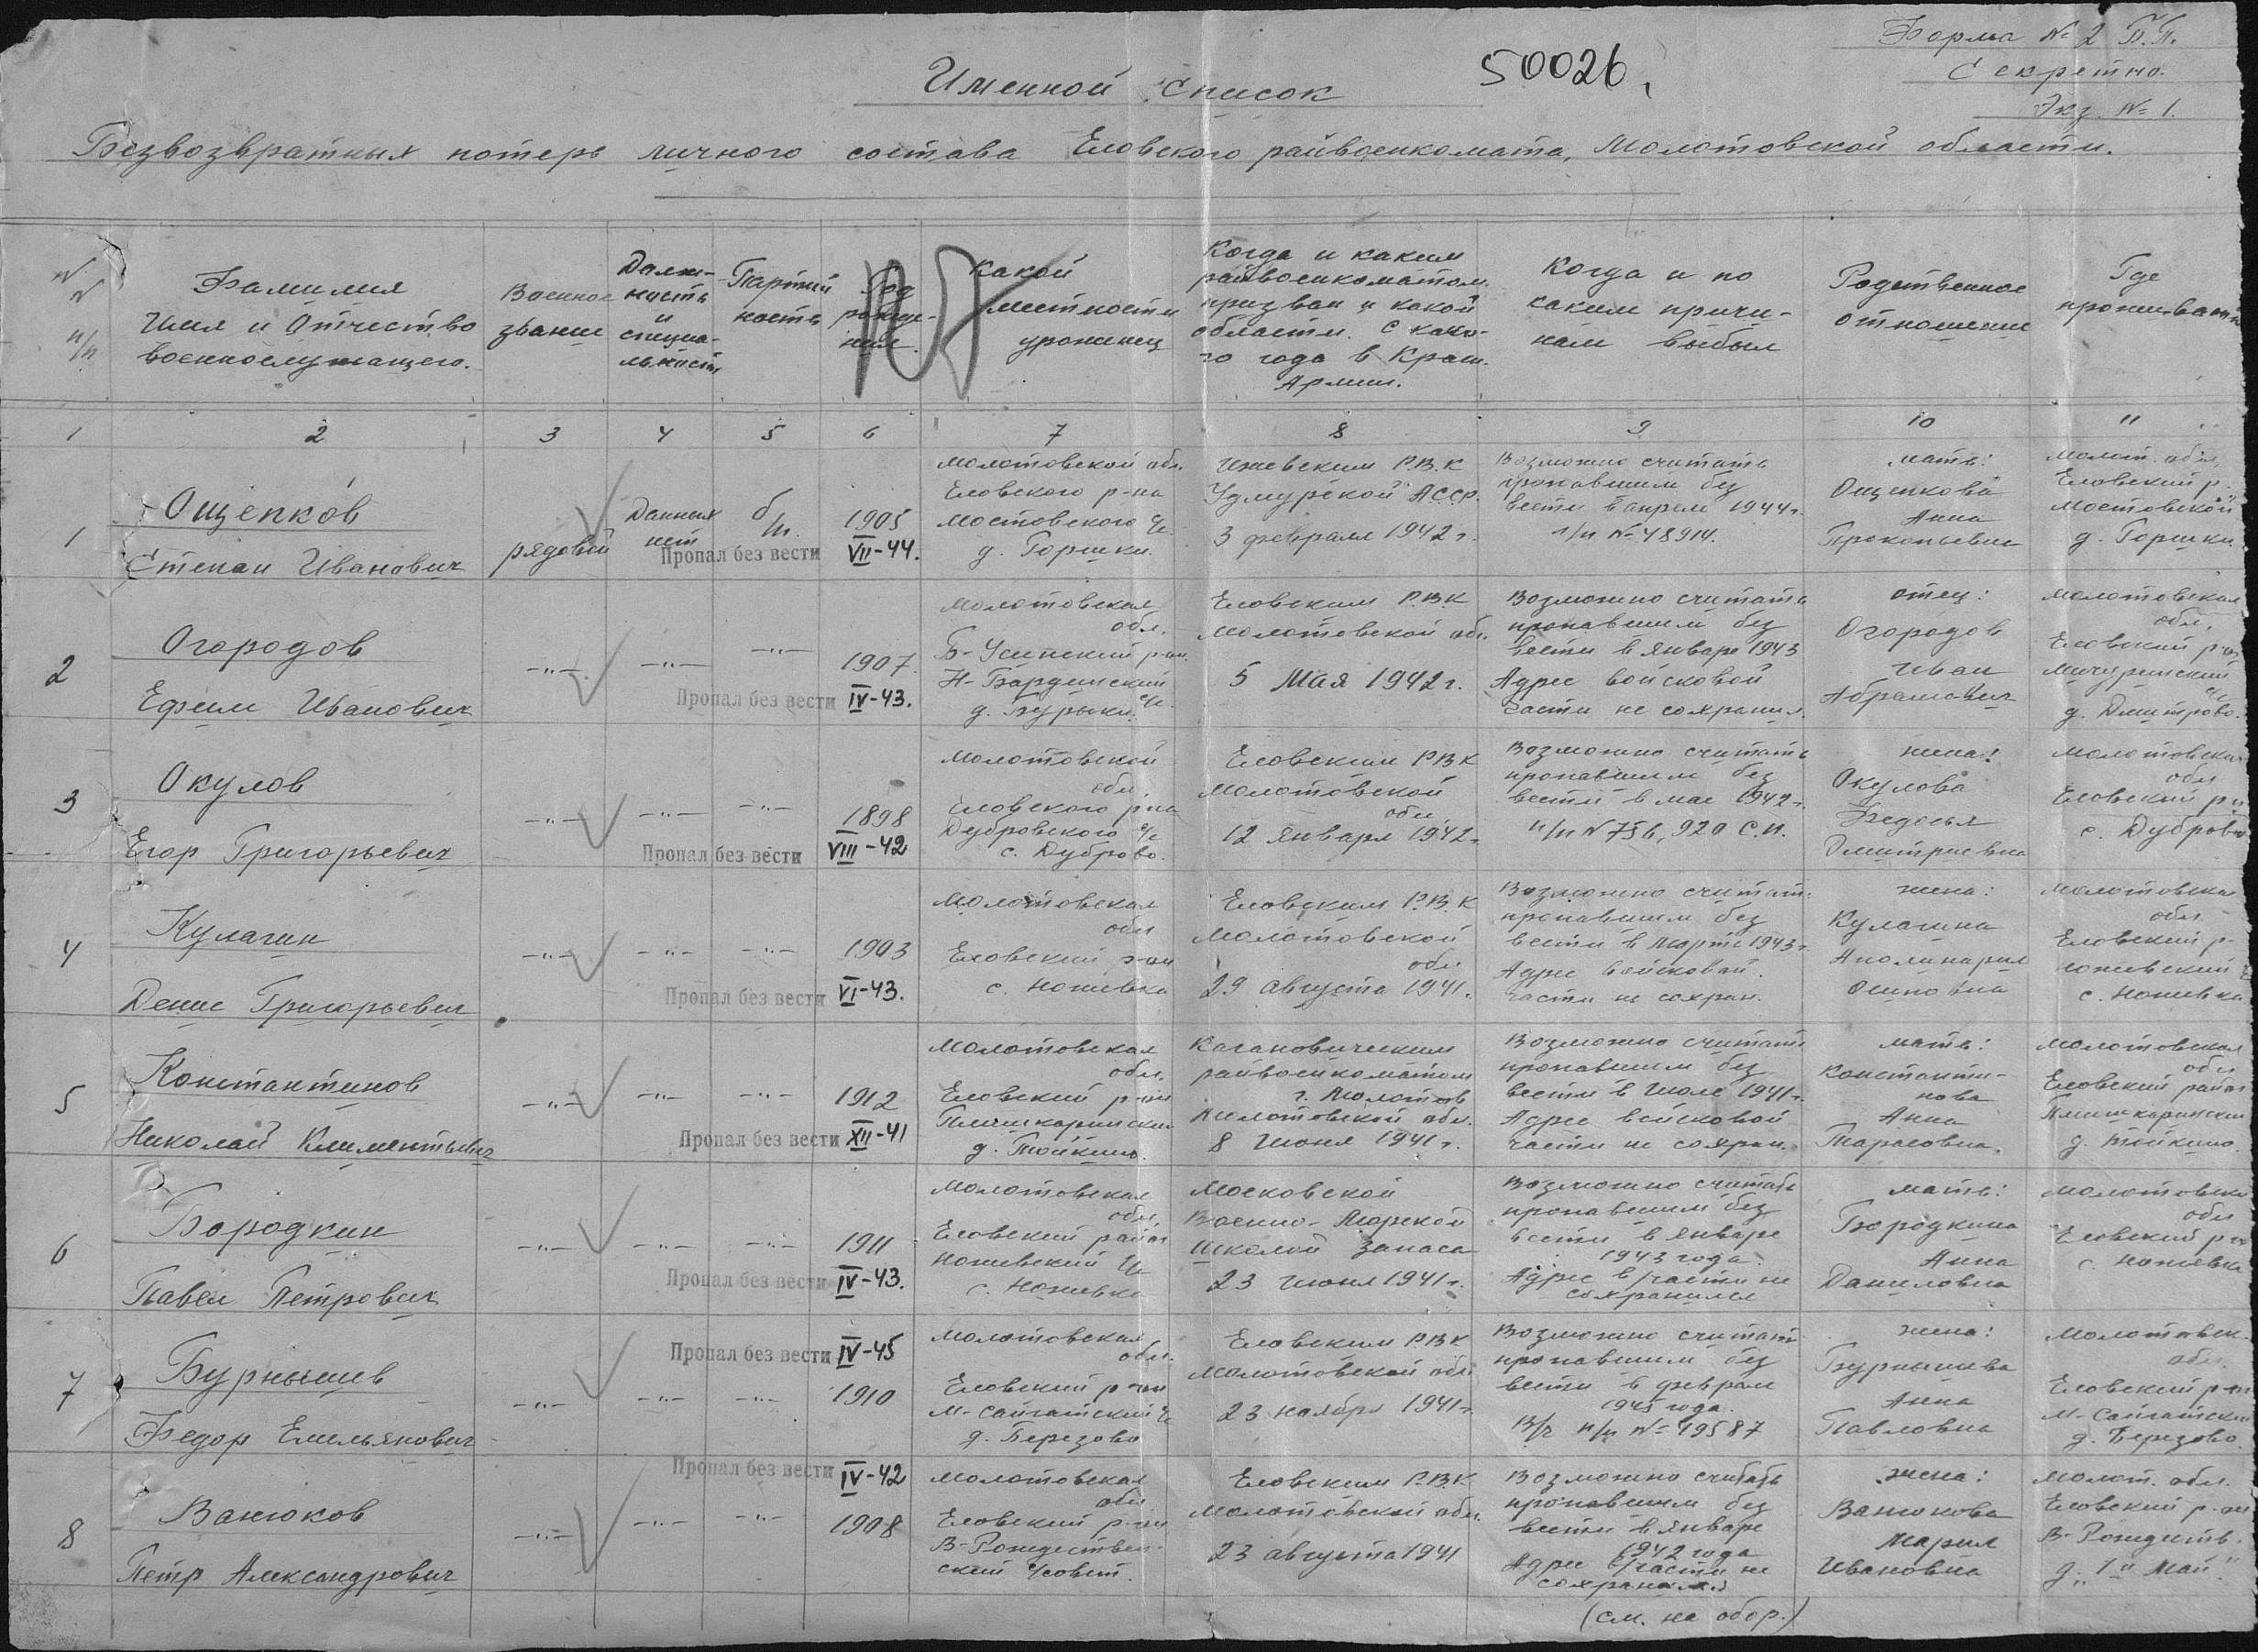 Форма № 2 Б.П.
Секретно.
Экз. № 1.
50026
Именной список
Безвозвратных потерь личного состава Еловского райвоенкомата, Молотовской области.
№№ п/п
Фамилия
Имя и Отчество
военнослужащего.
Военное
звание
Долж-
ность
и
специа-
льность
Партий
ность
Год
рожде-
ния
Какой
местности
уроженец
Когда и каким
райвоенкоматом
призван и какой
области. С како-
го года в Крас.
Армии.
Когда и по
каким причи-
нам выбыл
Родственное
отношение
Где
проживает
1 2 3 4 5 6 7 8 9 10 11
1
Ощепков
Степан Иванович
рядовой
Данных
нет
б/п.
1905
Пропал без вести VII-44.
Молотовской обл.
Еловского р-на
Мостовского с/с
д. Горшки.
Ижевским Р.В.К
Удмурской АССР.
3 февраля 1942 г.
Возможно считать
пропавшим без
вести в апреле 1944 г.
п/п № 48914.
мать:
Ощепкова
Анна
Прокопьевна
Молот. обл,
Еловский р.
Мостовской
д. Горшки
2
Огородов
Ефим Иванович
-"-
-"-
-"-
1907
Пропал без вести IV-43.
Молотовская
обл.
Б-Усинский р-он.
Н-Бардинский
с/с.
д. Бурыки.
Еловским Р.В.К
Молотовской обл.
5 Мая 1942 г.
Возможно считать
пропавшим без
вести в январе 1943
Адрес войсковой
части не сохранил.
отец:
Огородов
Иван
Абрамович
Молотовская
обл,
Еловский р-он
Мичуринский
с/с
д. Дмитрово.
3
Окулов
Егор Григорьевич
-"-
-"-
-"-
1898
Пропал без вести VIII-42
Молотовской
обл,
Еловского р-на
Дубровского с/с
с. Дуброво.
Еловским РВК
Молотовской
обл.
12 января 1942 г.
Возможно считать
пропавшим без
вести в мае 1942 г.
п/п № 756, 920 С.П.
жена:
Окулова
Федосья
Дмитриевна
Молотовская
обл
Еловский р-н
с. Дуброво
4
Кулагин
Денис Григорьевич
-"-
-"-
-"-
1903
Пропал без вести VI-43.
Молотовская
обл
Еловский р-он
с. Ножевка
Еловским Р.В.К
Молотовской
обл
29 августа 1941 г.
Возможно считать
пропавшим без
вести в марте 1943 г.
Адрес войсковой
части не сохран.
жена:
Кулагина
Аполинария
Осиповна
Молотовская
обл
Еловский р-
Ножевский
с. Ножевка
5
Константинов
Николай Климентьевич
-"-
-"-
-"-
1912
Пропал без вести XII-41
Молотовская
обл.
Еловский р-он
Плишкаринский
д. Тойкино.
Кагановическим
райвоенкоматом
г. Молотов
Молотовской обл.
8 Июня 1941 г.
Возможно считать
пропавшим без
вести в Июле 1941 г.
Адрес войсковой
части не сохран.
мать:
Константи-
нова
Анна
Тарасовна.
Молотовская
обл
Еловский район
Плишкаринский
д. Тойкино.
6
Бородкин
Павел Петрович
-"-
-"-
-"-
1911
Пропал без вести IV-43.
Молотовская
обл,
Еловский район
Ножевский с/с
с. Ножевка
Московской
Военно-Морской
школой запаса
23 июня 1941 г.
Возможно считать
пропавшим без
вести в январе
1943 года.
Адрес в/части не
сохранился
мать:
Бородкина
Анна
Даниловна
Молотовская
обл
Еловский р-н
с. Ножевка
7
Бурнышев
Федор Емельянович
-"-
-"-
-"-
Пропал без вести IV-45
1910
Молотовская
обл.
Еловский р-он
М-Сайгатский с/с
д. Березово
Еловским Р.В.К
Молотовской обл
23 ноября 1941 г.
Возможно считать
пропавшим без
вести в феврале
1945 года.
В/ч п/п № 49587
жена:
Бурнышева
Анна
Павловна
Молотовск.
обл.
Еловский р-он
М-Сайгатский
д. Березово.
8
Ванюков
Петр Александрович
-"-
-"-
-"-
Пропал без вести IV-42
1908
Молотовская
обл
Еловский р-он
В-Рождествен-
ский с/совет.
Еловским Р.В.К.
Молотовской обл.
23 августа 1941
Возможно считать
пропавшим без
вести в январе
1942 года
Адрес в/части не
сохранился
жена:
Ванюкова
Мария
Ивановна
Молот. обл.
Еловский р-он
В-Рождеств.
д. "1-"Май"
(см. на обор.)